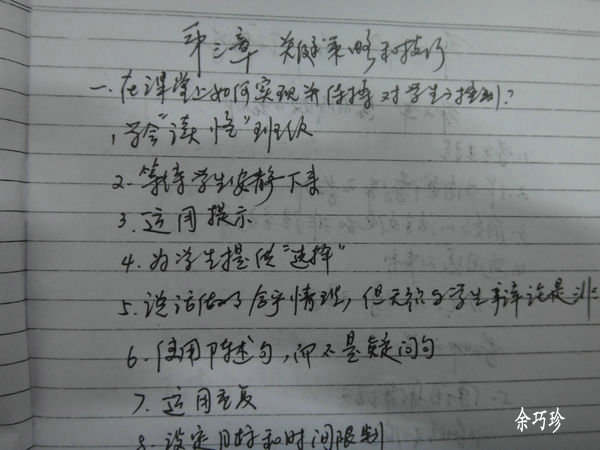 第三章 关键策略和技巧
一、在课堂上如何实现并保持对学生的控制?
1、学会"读懂"班级
2、等待学生安静下来
3、运用提示
4、为学生提供"选择"
5、说话做事合乎情理,但无须与学生争论是非
6、使用陈述句,而不是疑问句
7、运用重复
8、设定目标和时间限制
余巧珍